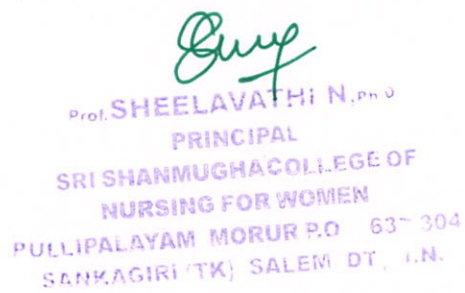 Prof. SHEELAVATHI N, Ph D
PRINCIPAL
SRI SHANMUGHA COLLEGE OF
NURSING FOR WOMEN
PULLIPALAYAM MORUR P.O 304
SANKAGIRI (TK) SALEM DT, T.N.